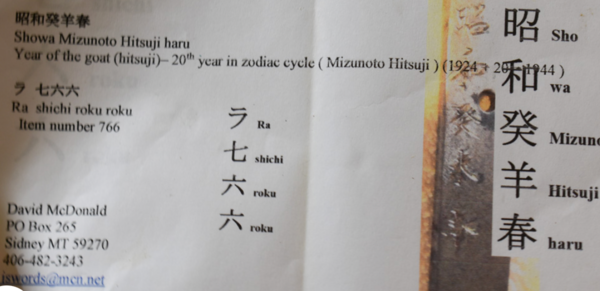 昭和癸羊春
Showa Mizunoto Hitsuji haru
Year of the goat (hitsuji)– 20th year in zodiac cycle ( Mizunoto Hitsuji ) (1924 + 20= 1944 )
ラ 七六六
Ra shichi roku roku
Item number 766
ラ Ra
七 shichi
六 roku
六 roku
David McDonald
PO Box 265
Sidney MT 59270
406-482-3243
jswords@mcn.net
昭 Sho
和 wa
癸 Mizuno
羊 Hitsuji
春 haru